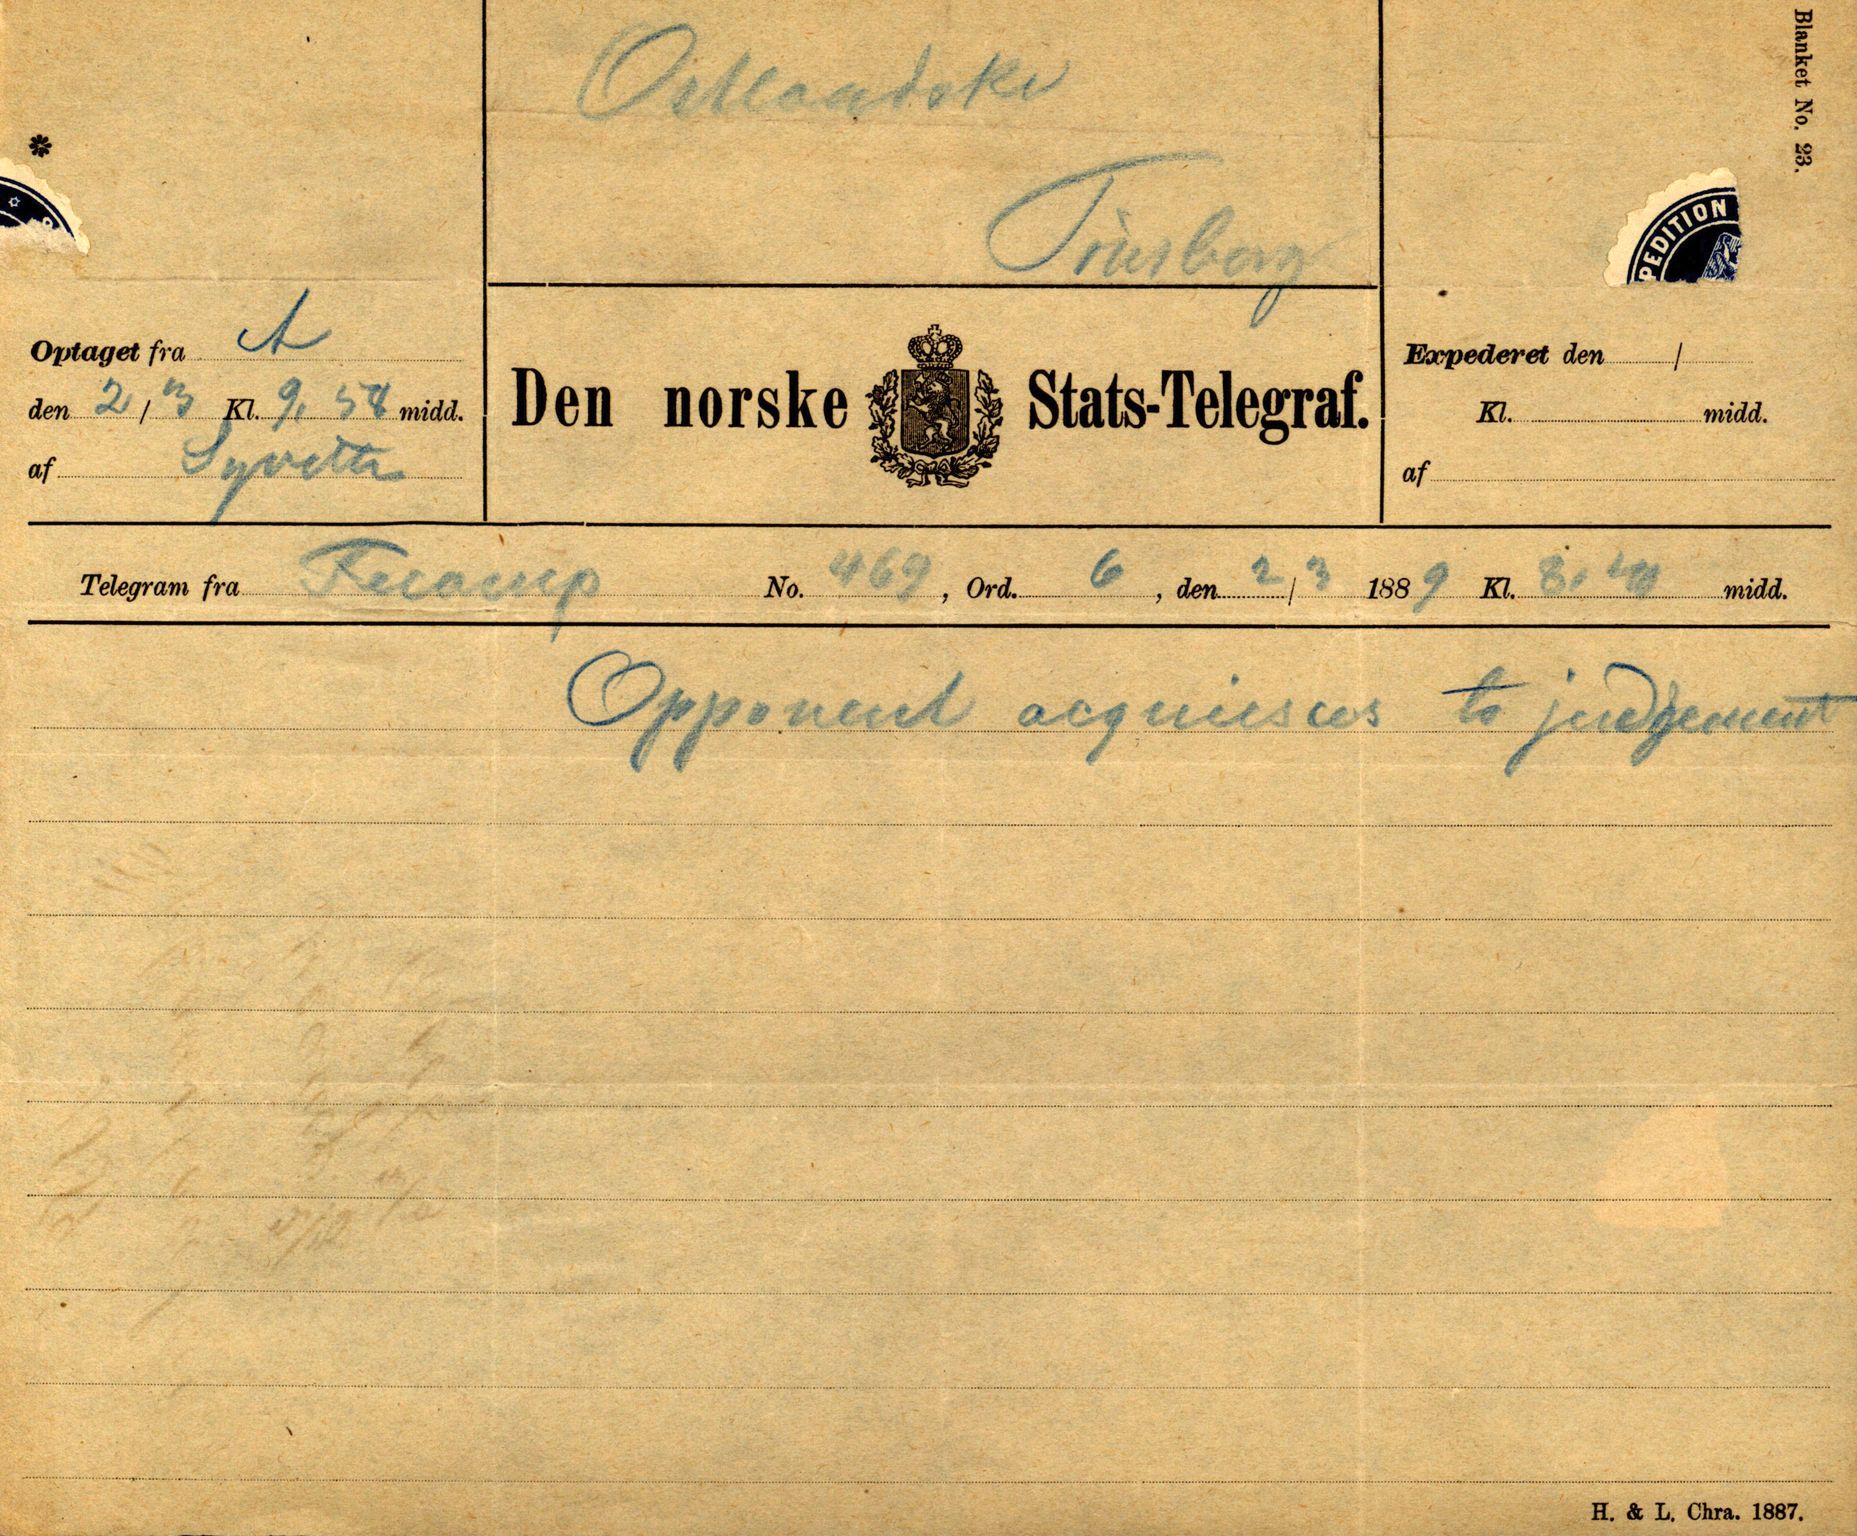 Blanket No. 23.
Ostlandske
Tönsberg
*
PEDITION
Optaget fra A
den 2/3 Kl. 9.58 midd.
af
Den norske Stats-Telegraf.
Expederet den /
Kl. midd.
af
Telegram fra Fecamp No. 469, Ord. 6, den 2/3 1889 Kl. 8.40 midd.
Opponent acquiesces to judgement
H. & L. Chra. 1887.